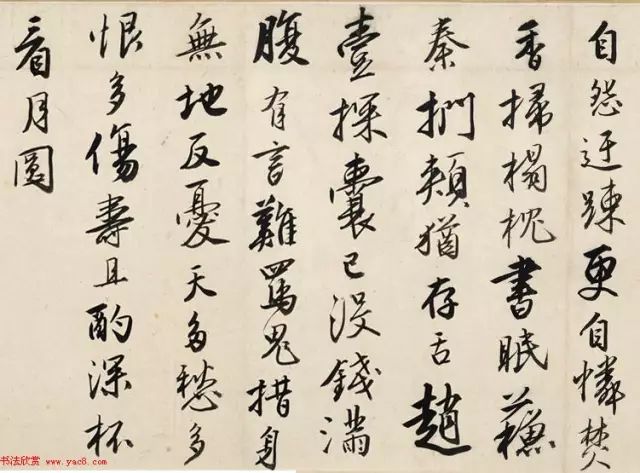 自怨迂踈更自憐焚
香掃榻枕書眠蘇
秦捫頰猶存舌趙
壹探囊已沒錢滿
腹有言難罵鬼措身
無地反憂天多愁多
恨多傷壽且酌深杯
看月圓
书法欣赏
www.yac8.com